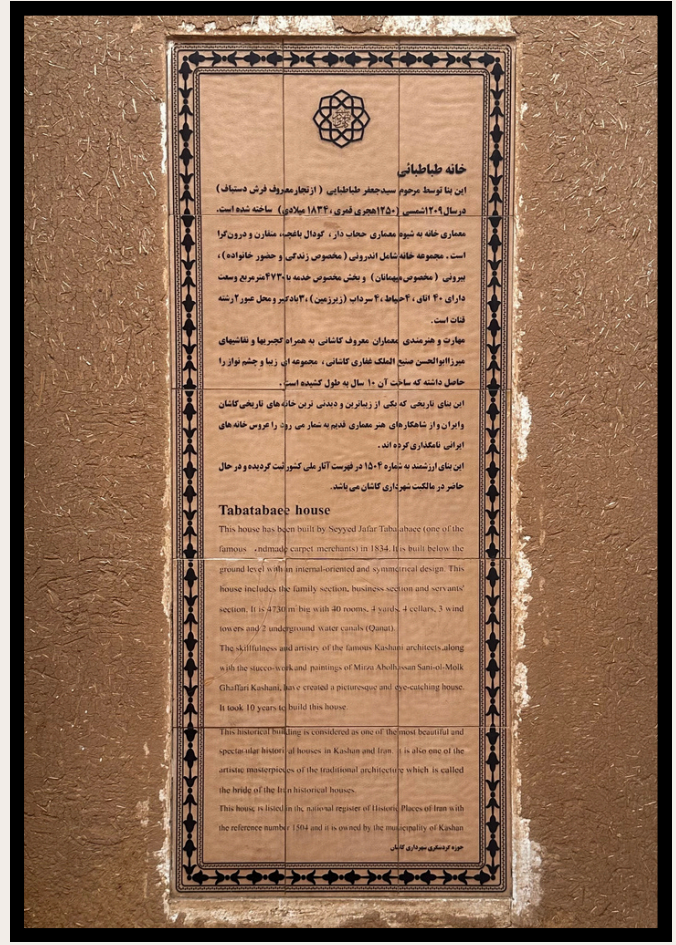 خانه طباطبائی
این بنا توسط مرحوم سیدجعفر طباطبایی ( از تجار معروف فرش دستباف )
در سال ۱۲۰۹شمسی (۱۲۵۰هجری قمری ، ۱۸۳۴ میلادی) ساخته شده است.
معماری خانه به شیوه معماری حجاب دار ، گودال باغچه، متقارن و درون‌گرا
است . مجموعه خانه شامل اندرونی ( مخصوص زندگی و حضور خانواده ) ،
بیرونی ( مخصوص میهمانان ) و بخش مخصوص خدمه با ۴۷۳۰مترمربع وسعت
دارای ۴۰ اتاق ، ۴حیاط ، ۴ سرداب (زیرزمین) ، ۳بادگیر و محل عبور ۲رشته
قنات است .
مهارت و هنرمندی معماران معروف کاشانی به همراه گچبریها و نقاشیهای
میرزاابوالحسن صنیع الملک غفاری کاشانی ، مجموعه ای زیبا و چشم نواز را
حاصل داشته که ساخت آن ۱۰ سال به طول کشیده است .
این بنای تاریخی که یکی از زیباترین و دیدنی ترین خانه های تاریخی کاشان
و ایران و از شاهکارهای هنر معماری قدیم به شمار می رود را عروس خانه های
ایرانی نامگذاری کرده اند .
این بنای ارزشمند به شماره ۱۵۰۴ در فهرست آثار ملی کشور ثبت گردیده و در حال
حاضر در مالکیت شهرداری کاشان می باشد .
Tabatabaee house
This house has been built by Seyyed Jafar Tabatabaee (one of the
famous ndmade carpet merchants) in 1834. It is built below the
ground level with an internal-oriented and symmetrical design. This
house includes the family section, business section and servants'
section. It is 4730 m² big with 40 rooms, 4 yards, 4 cellars, 3 wind
towers and 2 underground water canals (Qanat).
The skillfulness and artistry of the famous Kashani architects,along
with the stucco-work and paintings of Mirza Abolhassan Sani-ol-Molk
Ghaffari Kashani, have created a picturesque and eye-catching house.
It took 10 years to build this house.
This historical building is considered as one of the most beautiful and
spectacular historical houses in Kashan and Iran. it is also one of the
artistic masterpieces of the traditional architecture which is called
the bride of the Iran historical houses.
This house is listed in the national register of Historic Places of Iran with
the reference number 1504 and it is owned by the municipality of Kashan
حوزه گردشگری شهرداری کاشان